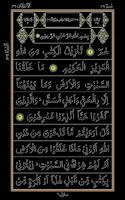 بِسْمِ اللهِ الرَّحْمٰنِ الرَّحِيْمِ
حٰمٓ تَنْزِيْلُ الْكِتٰبِ مِنَ اللهِ
الْعَزِيْزِ الْحَكِيْمِ مَا خَلَقْنَا
السَّمٰوٰتِ وَالْاَرْضَ وَمَا بَيْنَهُمَاۤ
اِلَّا بِالْحَقِّ وَاَجَلٍ مُّسَمًّى وَالَّذِيْنَ
كَفَرُوْا عَمَّاۤ اُنْذِرُوْا مُعْرِضُوْنَ
قُلْ اَرَءَيْتُمْ مَّا تَدْعُوْنَ مِنْ دُوْنِ اللهِ
اَرُوْنِيْ مَاذَا خَلَقُوْا مِنَ الْاَرْضِ
اَمْ لَهُمْ شِرْكٌ فِي السَّمٰوٰتِ اِيْتُوْنِيْ
بِكِتٰبٍ مِّنْ قَبْلِ هٰذَاۤ اَوْ اَثٰرَةٍ مِّنْ عِلْمٍ